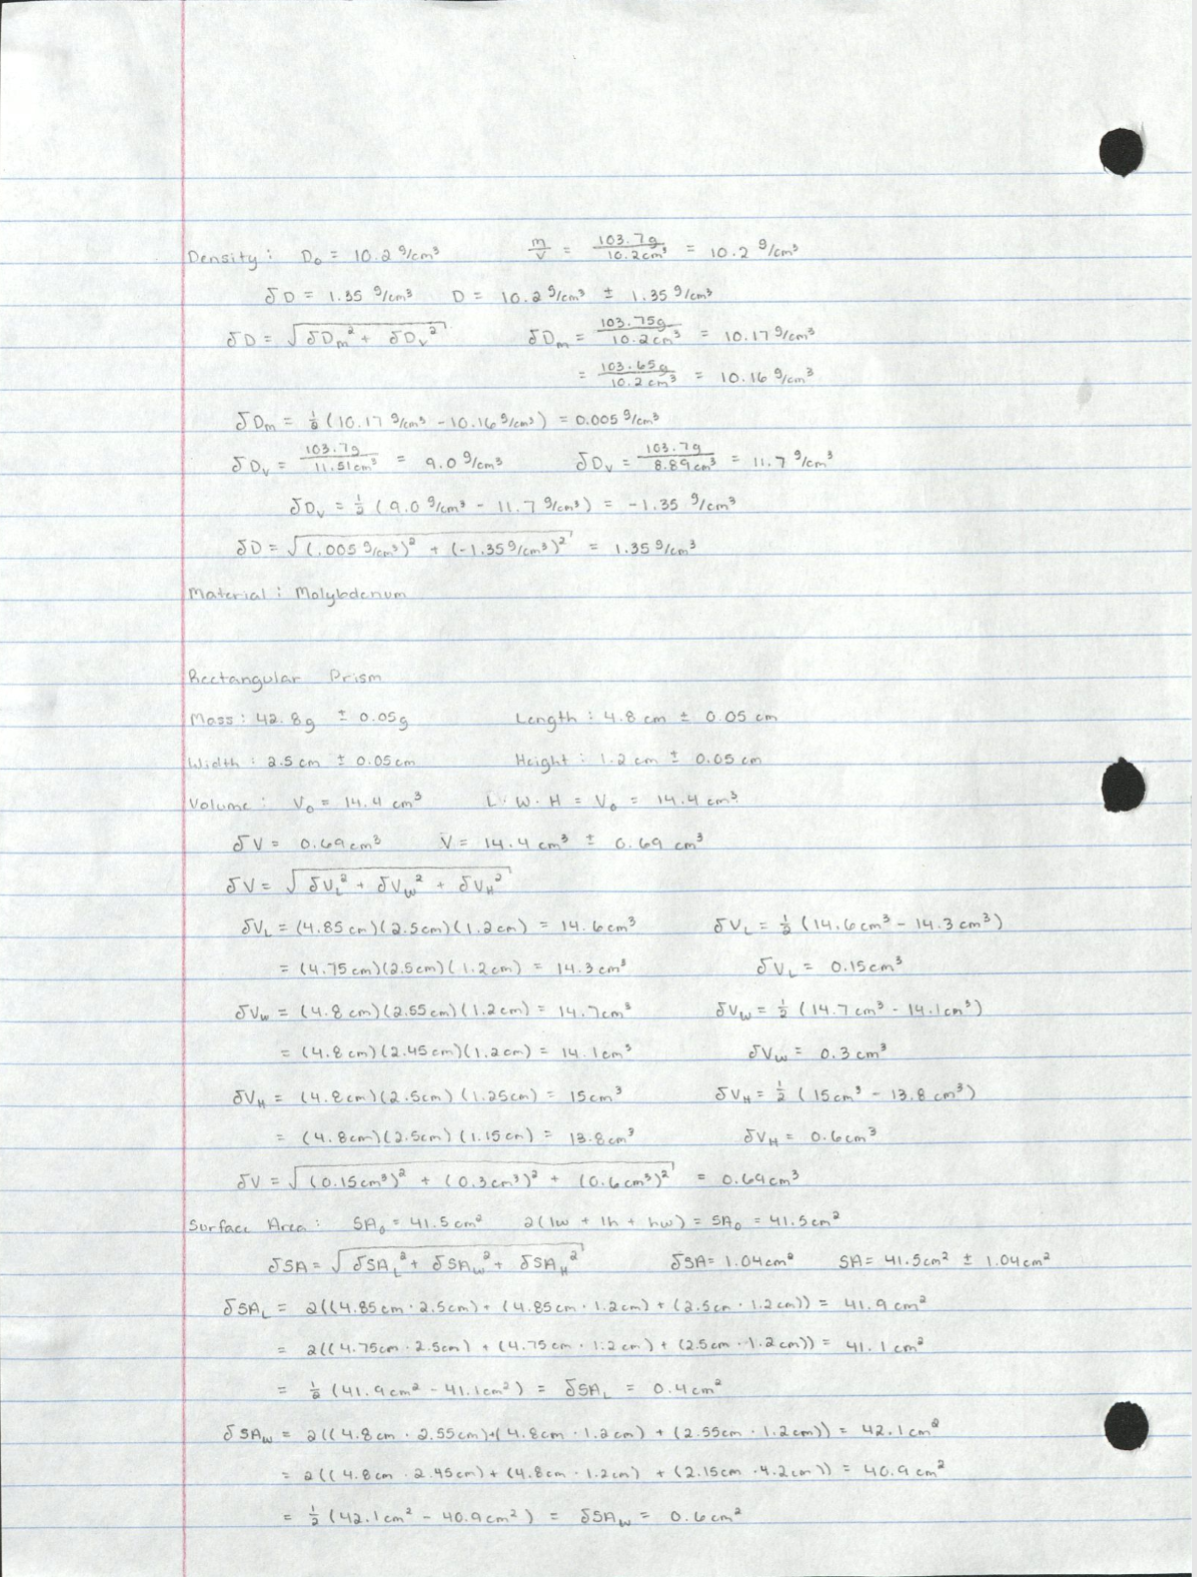 Density: D₀ = 10.2 g/cm³ m/v = 103.7g/10.2cm³ = 10.2 g/cm³
δD = 1.35 g/cm³ D = 10.2 g/cm³ ± 1.35 g/cm³
δD = √(δDₘ² + δDᵥ²) δDₘ = 103.75g/10.2cm³ = 10.17 g/cm³
= 103.65g/10.2cm³ = 10.16 g/cm³
δDₘ = ½ (10.17 g/cm³ - 10.16 g/cm³) = 0.005 g/cm³
δDᵥ = 103.7g/11.51cm³ = 9.0 g/cm³ δDᵥ = 103.7g/8.89cm³ = 11.7 g/cm³
δDᵥ = ½ (9.0 g/cm³ - 11.7 g/cm³) = -1.35 g/cm³
δD = √((.005 g/cm³)² + (-1.35 g/cm³)²) = 1.35 g/cm³
Material: Molybdenum
Rectangular Prism
Mass: 42.8g ± 0.05g Length: 4.8 cm ± 0.05 cm
Width: 2.5 cm ± 0.05cm Height: 1.2 cm ± 0.05 cm
Volume: V₀ = 14.4 cm³ L · W · H = V₀ = 14.4 cm³
δV = 0.69cm³ V = 14.4 cm³ ± 0.69 cm³
δV = √(δV_L² + δV_W² + δV_H²)
δV_L = (4.85 cm)(2.5cm)(1.2cm) = 14.6cm³ δV_L = ½ (14.6cm³ - 14.3 cm³)
= (4.75cm)(2.5cm)(1.2cm) = 14.3cm³ δV_L = 0.15cm³
δV_W = (4.8 cm)(2.55cm)(1.2cm) = 14.7cm³ δV_W = ½ (14.7 cm³ - 14.1cm³)
= (4.8cm)(2.45cm)(1.2cm) = 14.1cm³ δV_W = 0.3 cm³
δV_H = (4.8cm)(2.5cm)(1.25cm) = 15cm³ δV_H = ½ (15cm³ - 13.8 cm³)
= (4.8cm)(2.5cm)(1.15cm) = 13.8cm³ δV_H = 0.6cm³
δV = √((0.15cm³)² + (0.3cm³)² + (0.6cm³)²) = 0.69cm³
Surface Area: SA₀ = 41.5cm² 2(lw + lh + hw) = SA₀ = 41.5cm²
δSA = √(δSA_L² + δSA_W² + δSA_H²) δSA = 1.04cm² SA = 41.5cm² ± 1.04cm²
δSA_L = 2((4.85cm · 2.5cm) + (4.85cm · 1.2cm) + (2.5cm · 1.2cm)) = 41.9cm²
= 2((4.75cm · 2.5cm) + (4.75cm · 1.2cm) + (2.5cm · 1.2cm)) = 41.1cm²
= ½ (41.9cm² - 41.1cm²) = δSA_L = 0.4cm²
δSA_W = 2((4.8cm · 2.55cm)+(4.8cm · 1.2cm) + (2.55cm · 1.2cm)) = 42.1cm²
= 2((4.8cm · 2.45cm) + (4.8cm · 1.2cm) + (2.15cm · 4.2cm)) = 40.9cm²
= ½ (42.1cm² - 40.9cm²) = δSA_W = 0.6cm²